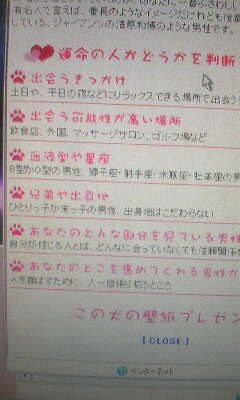 有名人で言えば、番長のようなイメージだけれども後輩
している、ジャイアンツの清原和博のような男性です。
運命の人かどうかを判断
出会うきっかけ
土日や、平日の夜などにリラックスできる場所で出会う
出会う可能性が高い場所
飲食店、外国、マッサージサロン、ゴルフ場など
血液型や星座
B型かO型の男性、獅子座・射手座・水瓶座・牡羊座の男
兄弟や出身地
ひとりっ子か末っ子の男性、出身地はこだわらない
あなたのどんな部分を見ている男性
自分が信じる人とは、どんなに会っていなくても信頼関係
あなたのどこを褒めてくれる男性か
人を喜ばすために、人一倍頑張り切るところ
この犬の壁紙プレゼン
[CLOSE]
インターネット